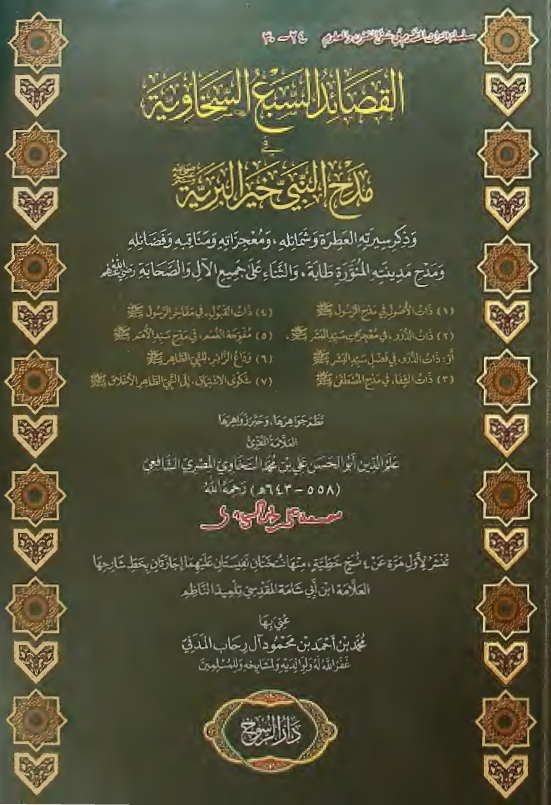 سلسلة التراث المنظوم في شتى الفنون والعلوم ٢٤-٣٠
القصائد السبع السخاوية
في
مدح النبي خير البرية ﷺ
وذكر سيرته العطرة وشمائله، ومعجزاته ومناقبه وفضائله
ومدح مدينته المنورة طابة، والثناء على جميع الآل والصحابة رضي الله عنهم
(١) ذات الأصول، في مدح الرسول ﷺ
(٢) ذات الدرر، في معجزات سيد البشر ﷺ.
أو: ذات الدرر، في فضل سيد البشر ﷺ
(٣) ذات الشفا، في مدح المصطفى ﷺ
(٤) ذات القبول، في مفاخر الرسول ﷺ
(٥) مفرجة الغمم، في مدح سيد الأمم ﷺ
(٦) وداع الزائر، للنبي الطاهر ﷺ
(٧) شكوى الاشتياق، إلى النبي الطاهر الأخلاق ﷺ
نظم جواهرها، وحبر زواهرها
العلامة المقرئ
علم الدين أبو الحسن علي بن محمد السخاوي المصري الشافعي
(٥٥٨ - ٦٤٣هـ) رحمه الله
تنشر لأول مرة عن ٤ نسخ خطية، منها نسختان نفيستان عليهما إجازتان بخط شارحها
العلامة ابن أبي شامة المقدسي تلميذ الناظم
عني بها
محمد بن أحمد بن محمود آل رحاب المدني
غفر الله له ولوالديه ولمشايخه وللمسلمين
دار الرسوخ